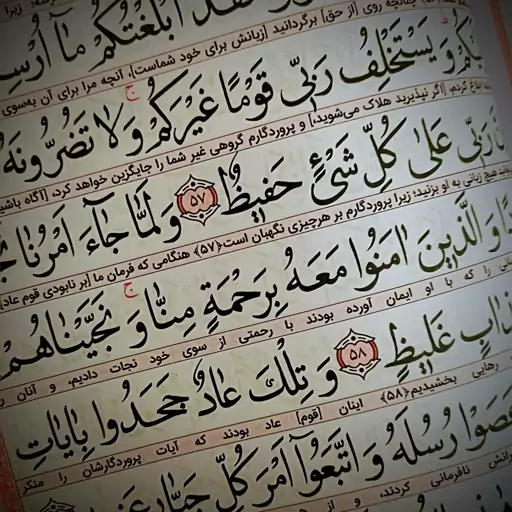 فقد ابلغتكم ما ارس
چنانچه روی [از حق] برگردانید [زیانش برای خود شماست]، آنچه مرا برای آن به‌سوی
وَيَسْتَخْلِفُ رَبّى قَوْمًا غَيْرَكُمْ وَلَا تَضُرُّونَهُ
ابلاغ کردم، [اگر نپذیرید هلاک می‌شوید،] و پروردگارم گروهی غیر شما را جایگزین خواهد کرد، [آگاه باشید
رَبّى عَلىٰ كُلِّ شَىْءٍ حَفيظٌ ﴿۵۷﴾ وَلَمّا جاءَ اَمْرُنا
هیچ زیانی به او بزنید؛ زیرا پروردگارم بر هرچیزی نگهبان است﴿۵۷﴾ هنگامی که فرمان ما [بر نابودی قوم عاد]
وَالَّذينَ ءامَنُوا مَعَهُ بِرَحْمَةٍ مِنّا وَ نَجَّيْناهُمْ
را که با او ایمان آورده بودند با رحمتی از سوی خود نجات دادیم، و آنان را
غَليظٍ ﴿۵۸﴾ وَ تِلْكَ عادٌ جَحَدُوا بِاياتِ
رهایی بخشیدیم﴿۵۸﴾ اینان [قوم] عاد بودند که آیات پروردگارشان را منکر
رُسُلَهُ وَ اتَّبَعُوا اَمْرَ كُلِّ جَبّارٍ
نافرمانی کردند، و از